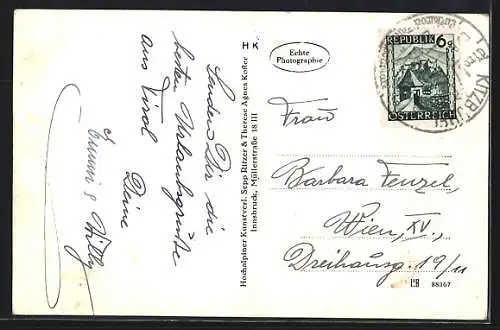 Senden Dir die
besten Urlaubsgrüße
aus Tirol
Deine
Emmi & Willy
H K
Hochalpiner Kunstverl. Sepp Ritzer & Therese Agnes Kofler
Innsbruck, Müllerstraße 18 III
Echte
Photographie
REPUBLIK 6 g
ÖSTERREICH
KITZB
Frau
Barbara Fenzel,
Wien, XV.,
Dreihausg. 19/11
88167